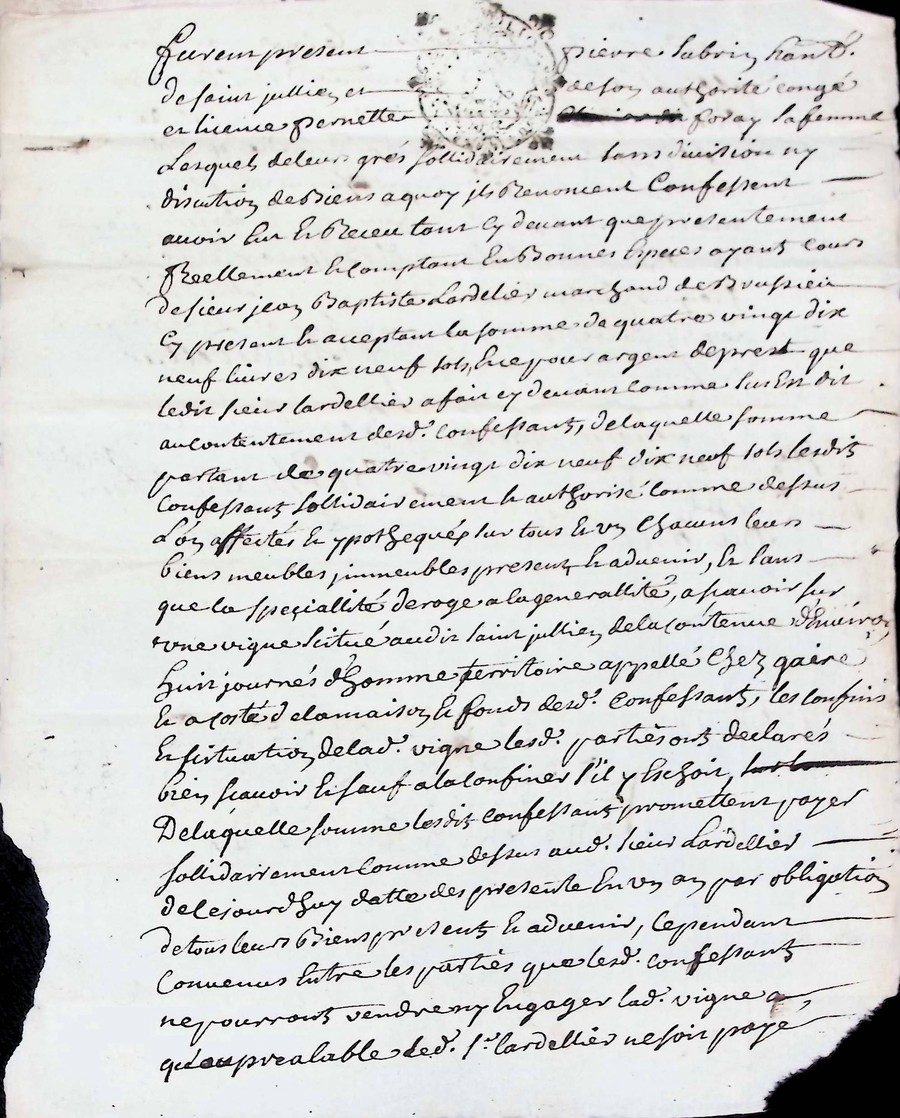 furent present pierre Sabrin hanᵗ.
de saint jullien et de son authorité congé
et licence pernette foray sa femme
Lesquels de leurs grés sollidairement sans division ny
discution de Biens a quoy ils Renoncent Confessent
avoir Eu et Receu tant cy devant que presentement
Reellement et comptant En Bonnes Especes ayant cours
de sieur jean Baptiste Lardelier marchand de Brussieu
cy present et acceptant la somme de quatre vingt dix
neuf livres dix neuf sols, Et ce pour argent de prest que
ledit sieur lardellier a fait cy devant comme sus Est dit
au contentement desd. confessant, de laquelle somme
partant de quatre vingt dix neuf dix neuf sols lesdit
Confessant sollidairement et authorisé comme dessus
L'on affectés et ypothequés sur tous et un chacuns leurs
biens meubles immeubles present et advenir, et sans
que la speciallité deroge a la generallité, a scavoir sur
une vigne scitué audit saint jullien de la contenue d'Environ
huit journés d'homme territoire appellé chez gaire
et a costé de la maison et fonds desd. confessant, les confins
et situation de lad. vigne lesd. partiès ont declarés
bien scavoir et sauf a la confiner s'il y Eschoit,
De laquelle somme lesdit confessant promettent payer
sollidairement comme dessus aud. sieur Lardellier
de cejourdhuy datte des presente En un an par obligation
de tous leurs Biens present et advenir, Cependant
Convenus Entre les partiès que lesd. confessant
ne pourront vendre ny Engager lad. vigne a
qu'au prealable led. sʳ. lardellier ne soit payé